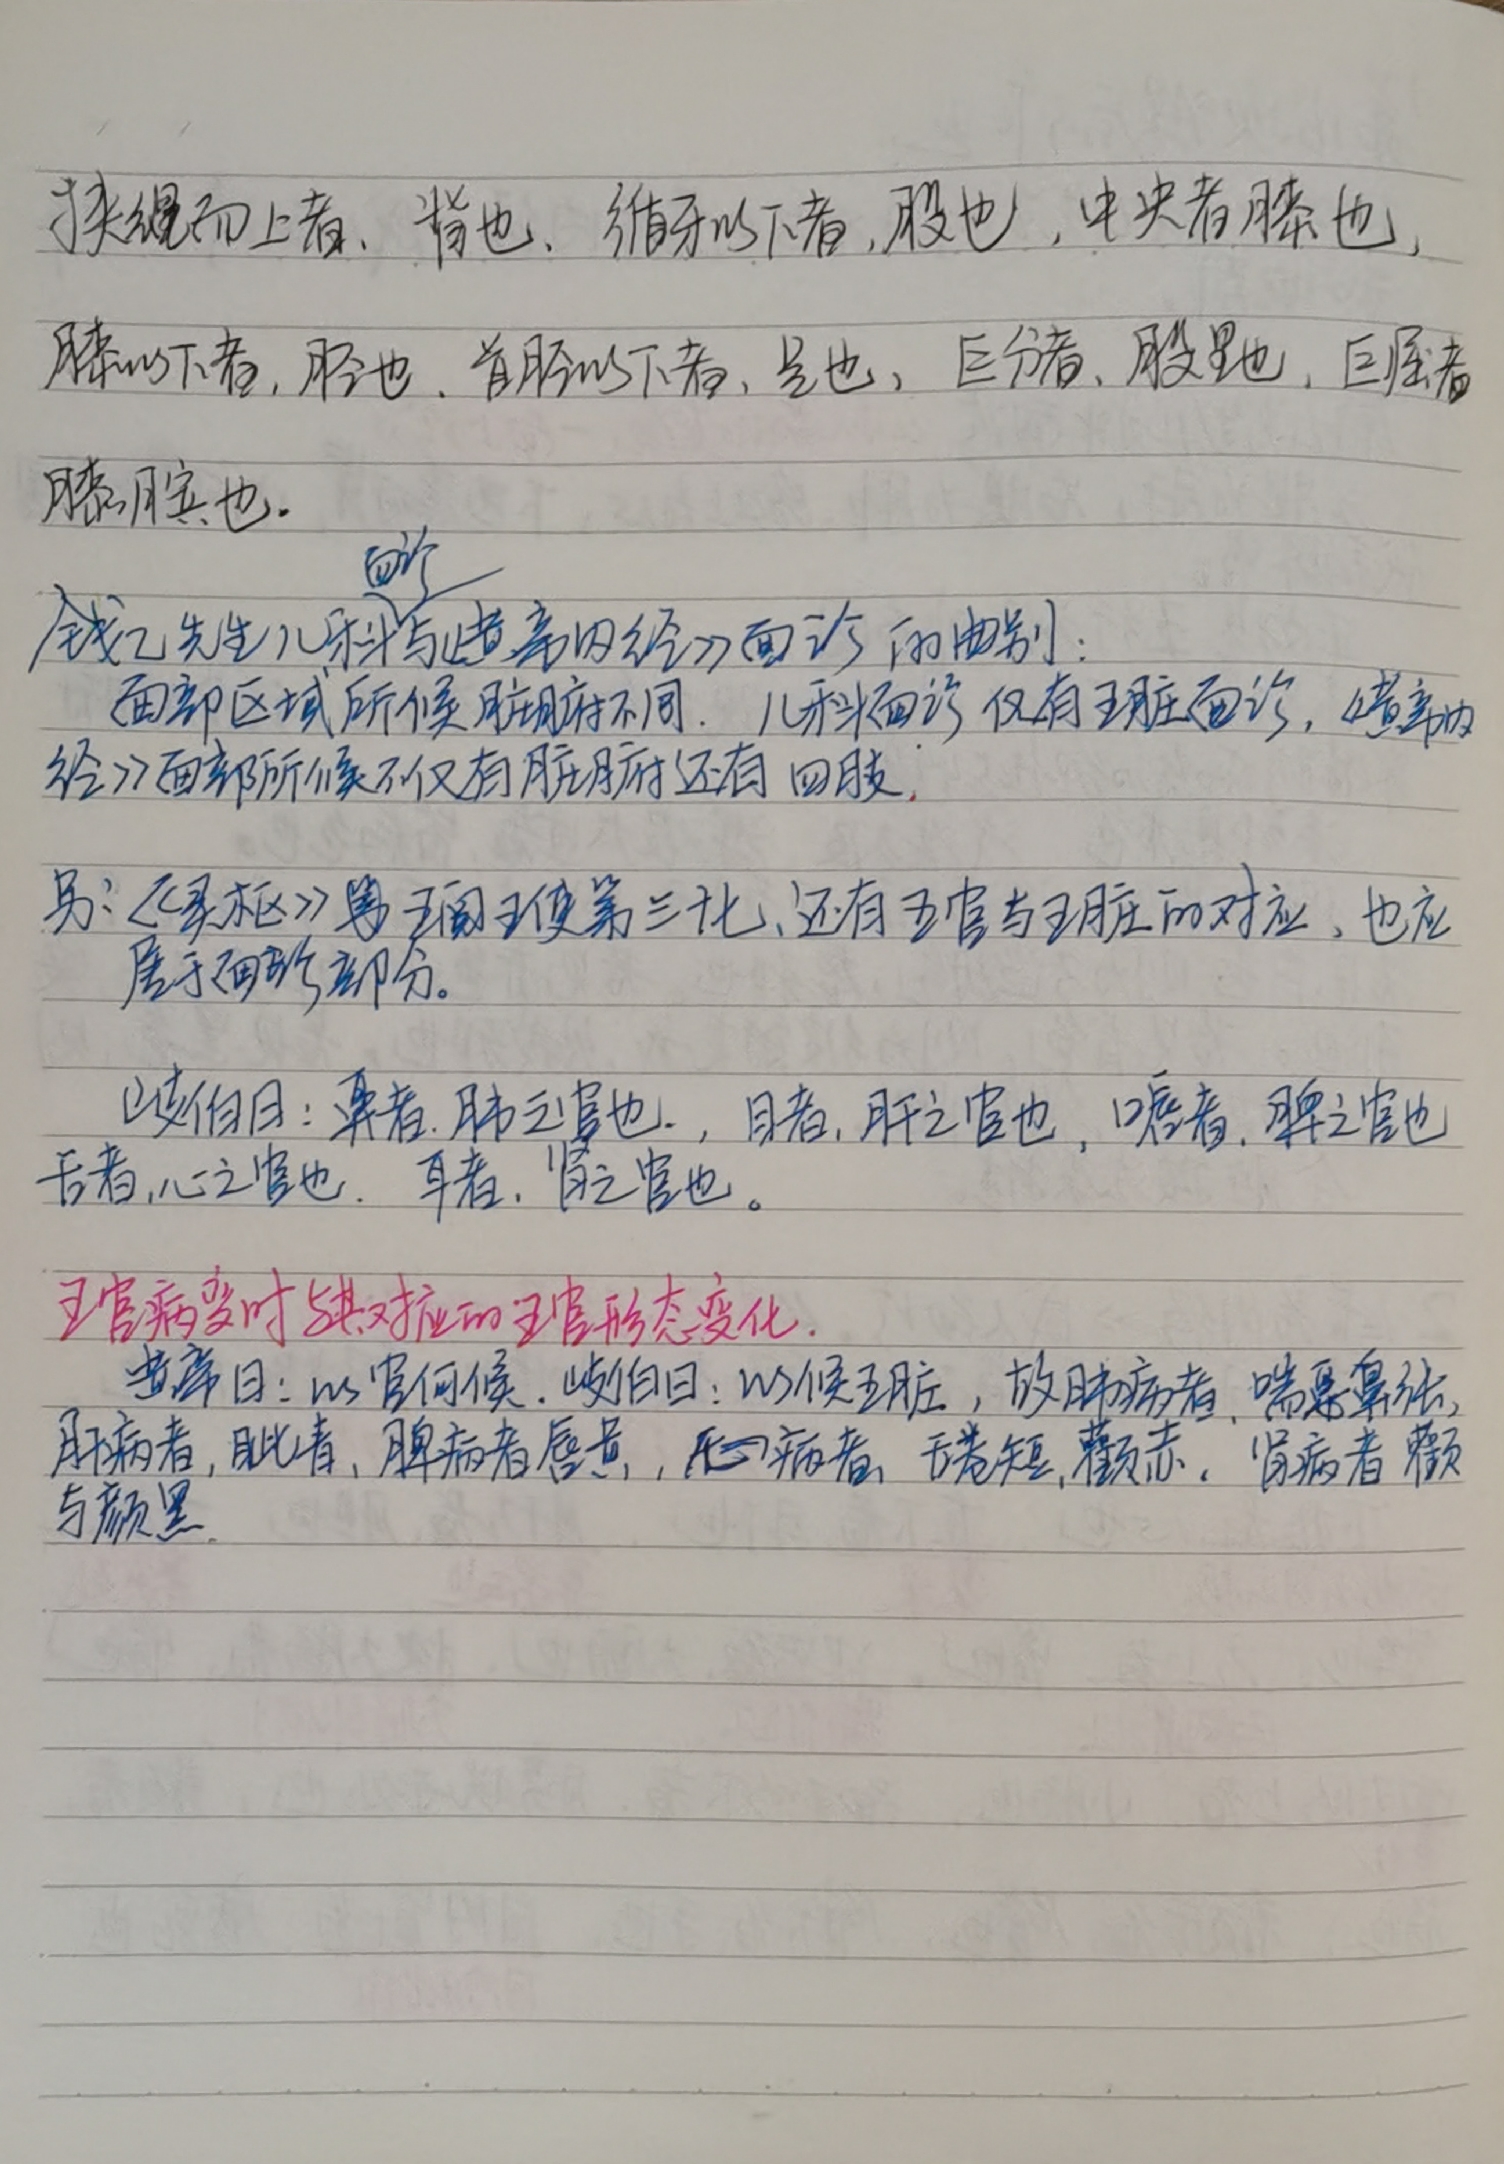 挟绳而上者、背也、循牙以下者,股也,中央者膝也,
膝以下者,胫也、当胫以下者、足也,巨分者、股里也,巨屈者
膝膑也。
面诊
钱乙先生儿科与《黄帝内经》面诊的区别:
面部区域所候脏腑不同. 儿科面诊仅有五脏面诊,《黄帝内
经》面部所候不仅有脏腑还有四肢.
另:《灵枢》 五阅五使第三十七、还有五官与五脏的对应、也应
属于面诊部分。
岐伯曰:鼻者.肺之官也.,目者,肝之官也,口唇者.脾之官也
舌者,心之官也. 耳者.肾之官也。
五官病变时与其对应的五官形态变化.
黄帝曰:以官何候.岐伯曰:以候五脏,故肺病者、喘息鼻张,
肝病者,目眦青、脾病者唇黄,心病者、舌卷短,颧赤.肾病者颧
与颜黑.